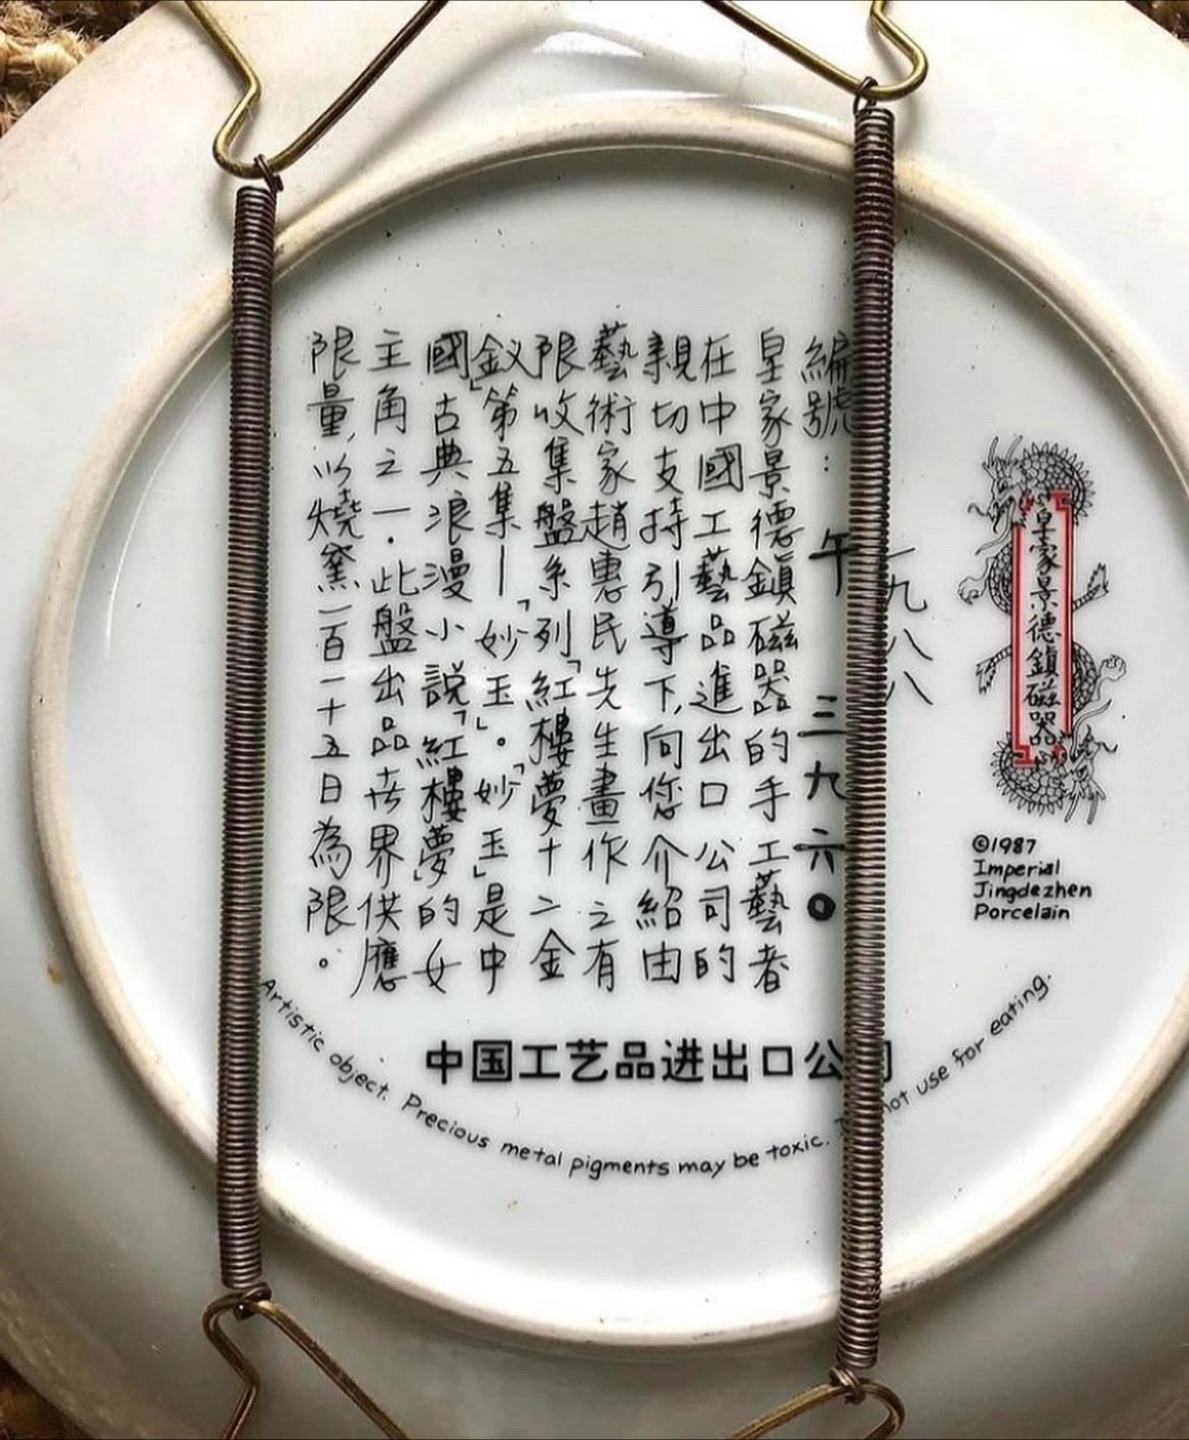 皇家景德鎮磁器
©1987
Imperial
Jingdezhen
Porcelain
一九八八
編號：午三九六〇
皇家景德鎮磁器的手工藝者
在中國工藝品進出口公司的
親切支持引導下，向您介紹由
藝術家趙惠民先生畫作之有
限收集盤系列「紅樓夢十二金
釵」第五集—「妙玉」。「妙玉」是中
國古典浪漫小說「紅樓夢」的女
主角之一．此盤出品在世界供應
限量，以燒窯一百一十五日為限。
中国工艺品进出口公司
Artistic object. Precious metal pigments may be toxic. not use for eating.